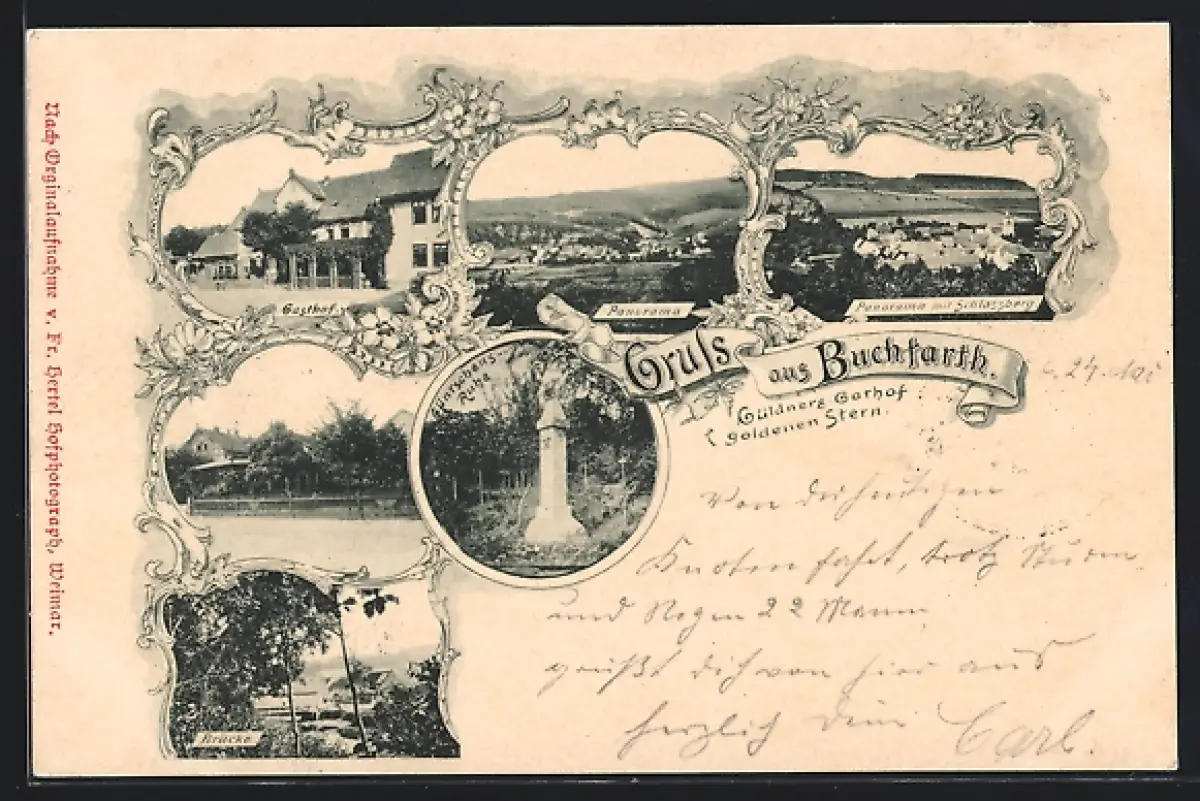 Nach Orginalaufnahme v. Fr. Hertel Hofphotograph, Weimar.
Gasthof.
Panorama
Panorama mit Schlossberg
Ruhe
Gruss aus Buchfarth.
Güldners Gathof
goldenen Stern.
Brücke
24.
Von
Knotenfahrt, trotz Sturm
und Regen 22 Mann,
grüßt dich von hier aus
herzlich dein Carl.